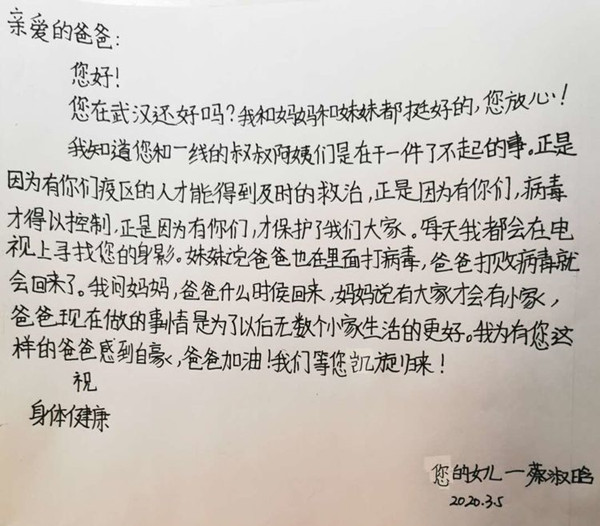 亲爱的爸爸:
您好!
您在武汉还好吗?我和妈妈和妹妹都挺好的,您放心!
我知道您和一线的叔叔阿姨们是在干一件了不起的事。正是
因为有你们疫区的人才能得到及时的救治,正是因为有你们,病毒
才得以控制,正是因为有你们,才保护了我们大家。每天我都会在电
视上寻找您的身影。妹妹说爸爸也在里面打病毒,爸爸打败病毒就
会回来了。我问妈妈,爸爸什么时候回来,妈妈说有大家才会有小家,
爸爸现在做的事情是为了以后无数个小家生活的更好。我为有您这
样的爸爸感到自豪,爸爸加油!我们等您凯旋归来!
祝
身体健康
您的女儿—蔡淑晗
2020.3.5